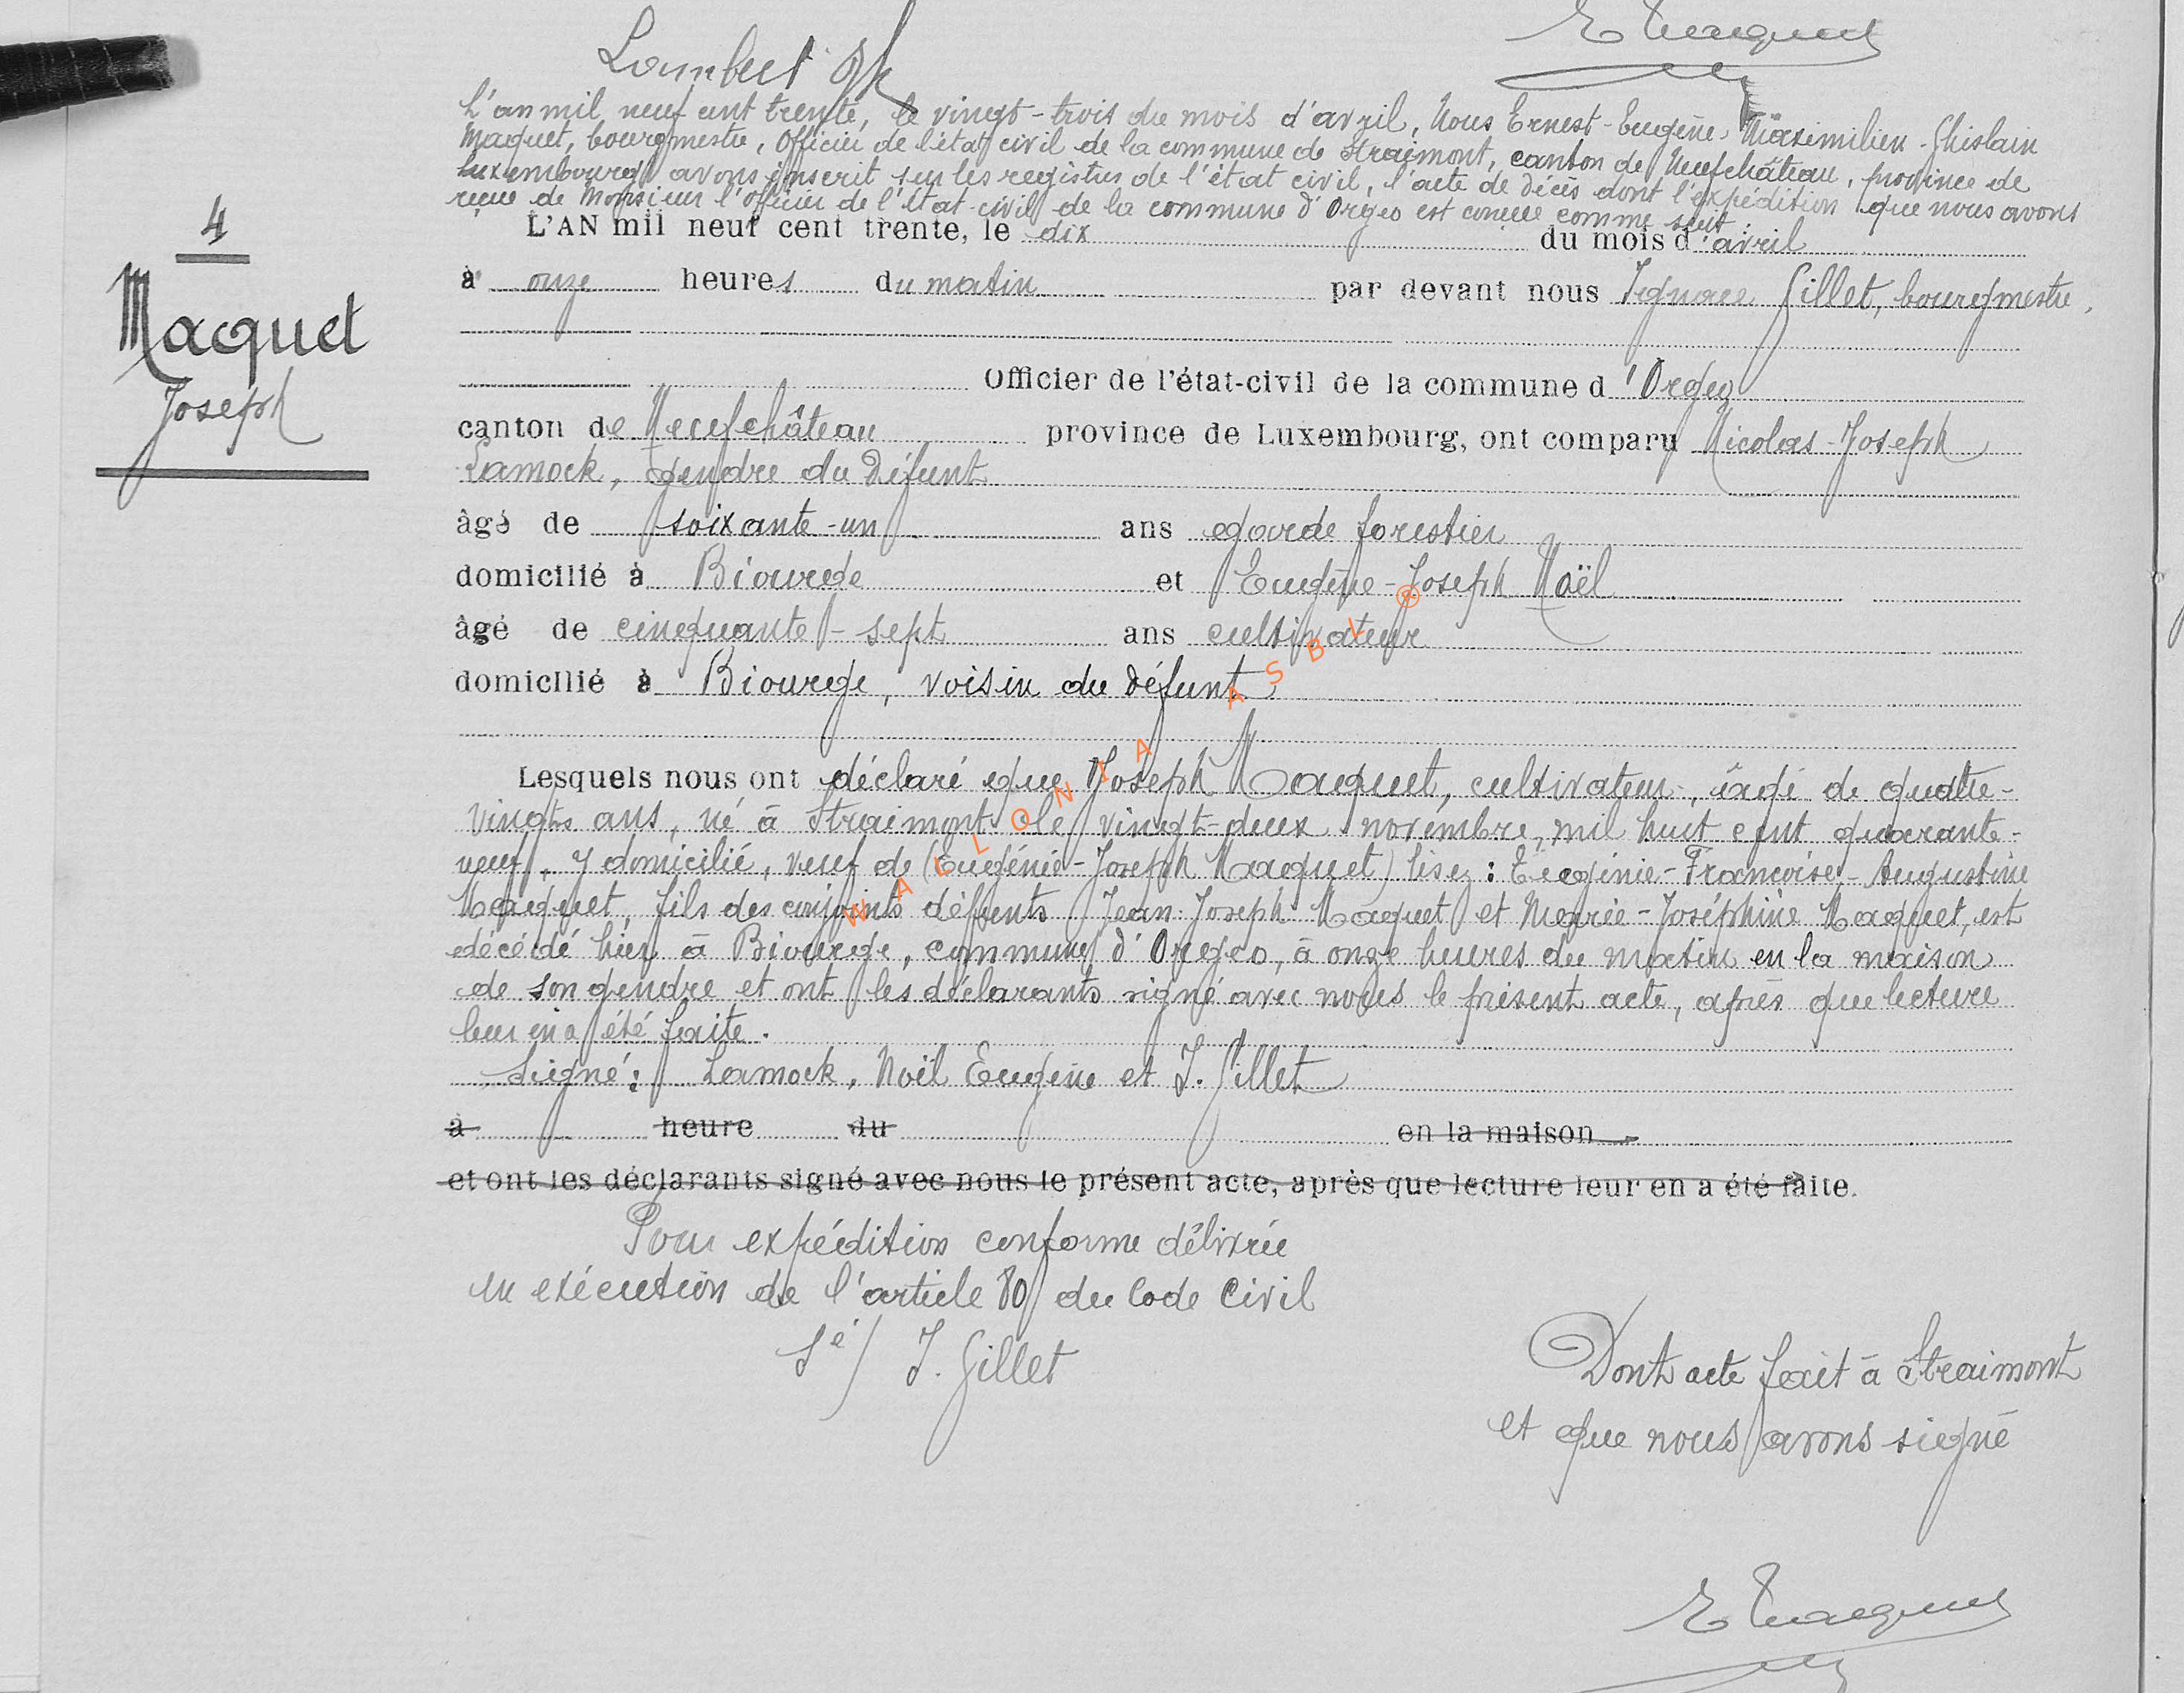 Lambert Jh
E Maquet
L'an mil neuf cent trente, le vingt-trois du mois d'avril, Nous Ernest-Eugène-Maximilien-Ghislain
Maquet, bourgmestre, Officier de l'état civil de la commune de Straimont, canton de Neufchâteau, province de
Luxembourg avons inscrit sur les registres de l'état civil, l'acte de décès dont l'expédition que nous avons
reçue de Monsieur l'officier de l'état-civil de la commune d'Orgeo est conçue comme suit :
4
Maquet
Joseph
L'AN mil neuf cent trente, le dix du mois d'avril
à onze heures du matin par devant nous Ignace Gillet, bourgmestre,
Officier de l'état-civil de la commune d'Orgeo
canton de Neufchâteau province de Luxembourg, ont comparu Nicolas-Joseph
Lamock, gendre du défunt
âgé de soixante-un ans garde forestier
domicilié à Biourge et Eugène-Joseph Noël
âgé de cinquante-sept ans cultivateur
domicilié à Biourge, voisin du défunt
Lesquels nous ont déclaré que Joseph Maquet, cultivateur, âgé de quatre-
vingts ans, né à Straimont le vingt-deux novembre mil huit cent quarante-
neuf, y domicilié, veuf de (Eugénie-Joseph Maquet) lisez : Eugénie-Françoise-Augustine
Maquet, fils des conjoints défunts Jean-Joseph Maquet et Marie-Joséphine Maquet, est
décédé hier à Biourge, commune d'Orgeo, à onze heures du matin en la maison
de son gendre et ont les déclarants signé avec nous le présent acte, après que lecture
leur en a été faite.
Signé : Lamock, Noël Eugène et I. Gillet
à heure du en la maison
et ont les déclarants signé avec nous le présent acte, après que lecture leur en a été faite.
Pour expédition conforme délivrée
en exécution de l'article 80 du Code Civil
Sé/ I. Gillet
Dont acte fait à Straimont
et que nous avons signé
E Maquet
WALLONIA ASBL ®